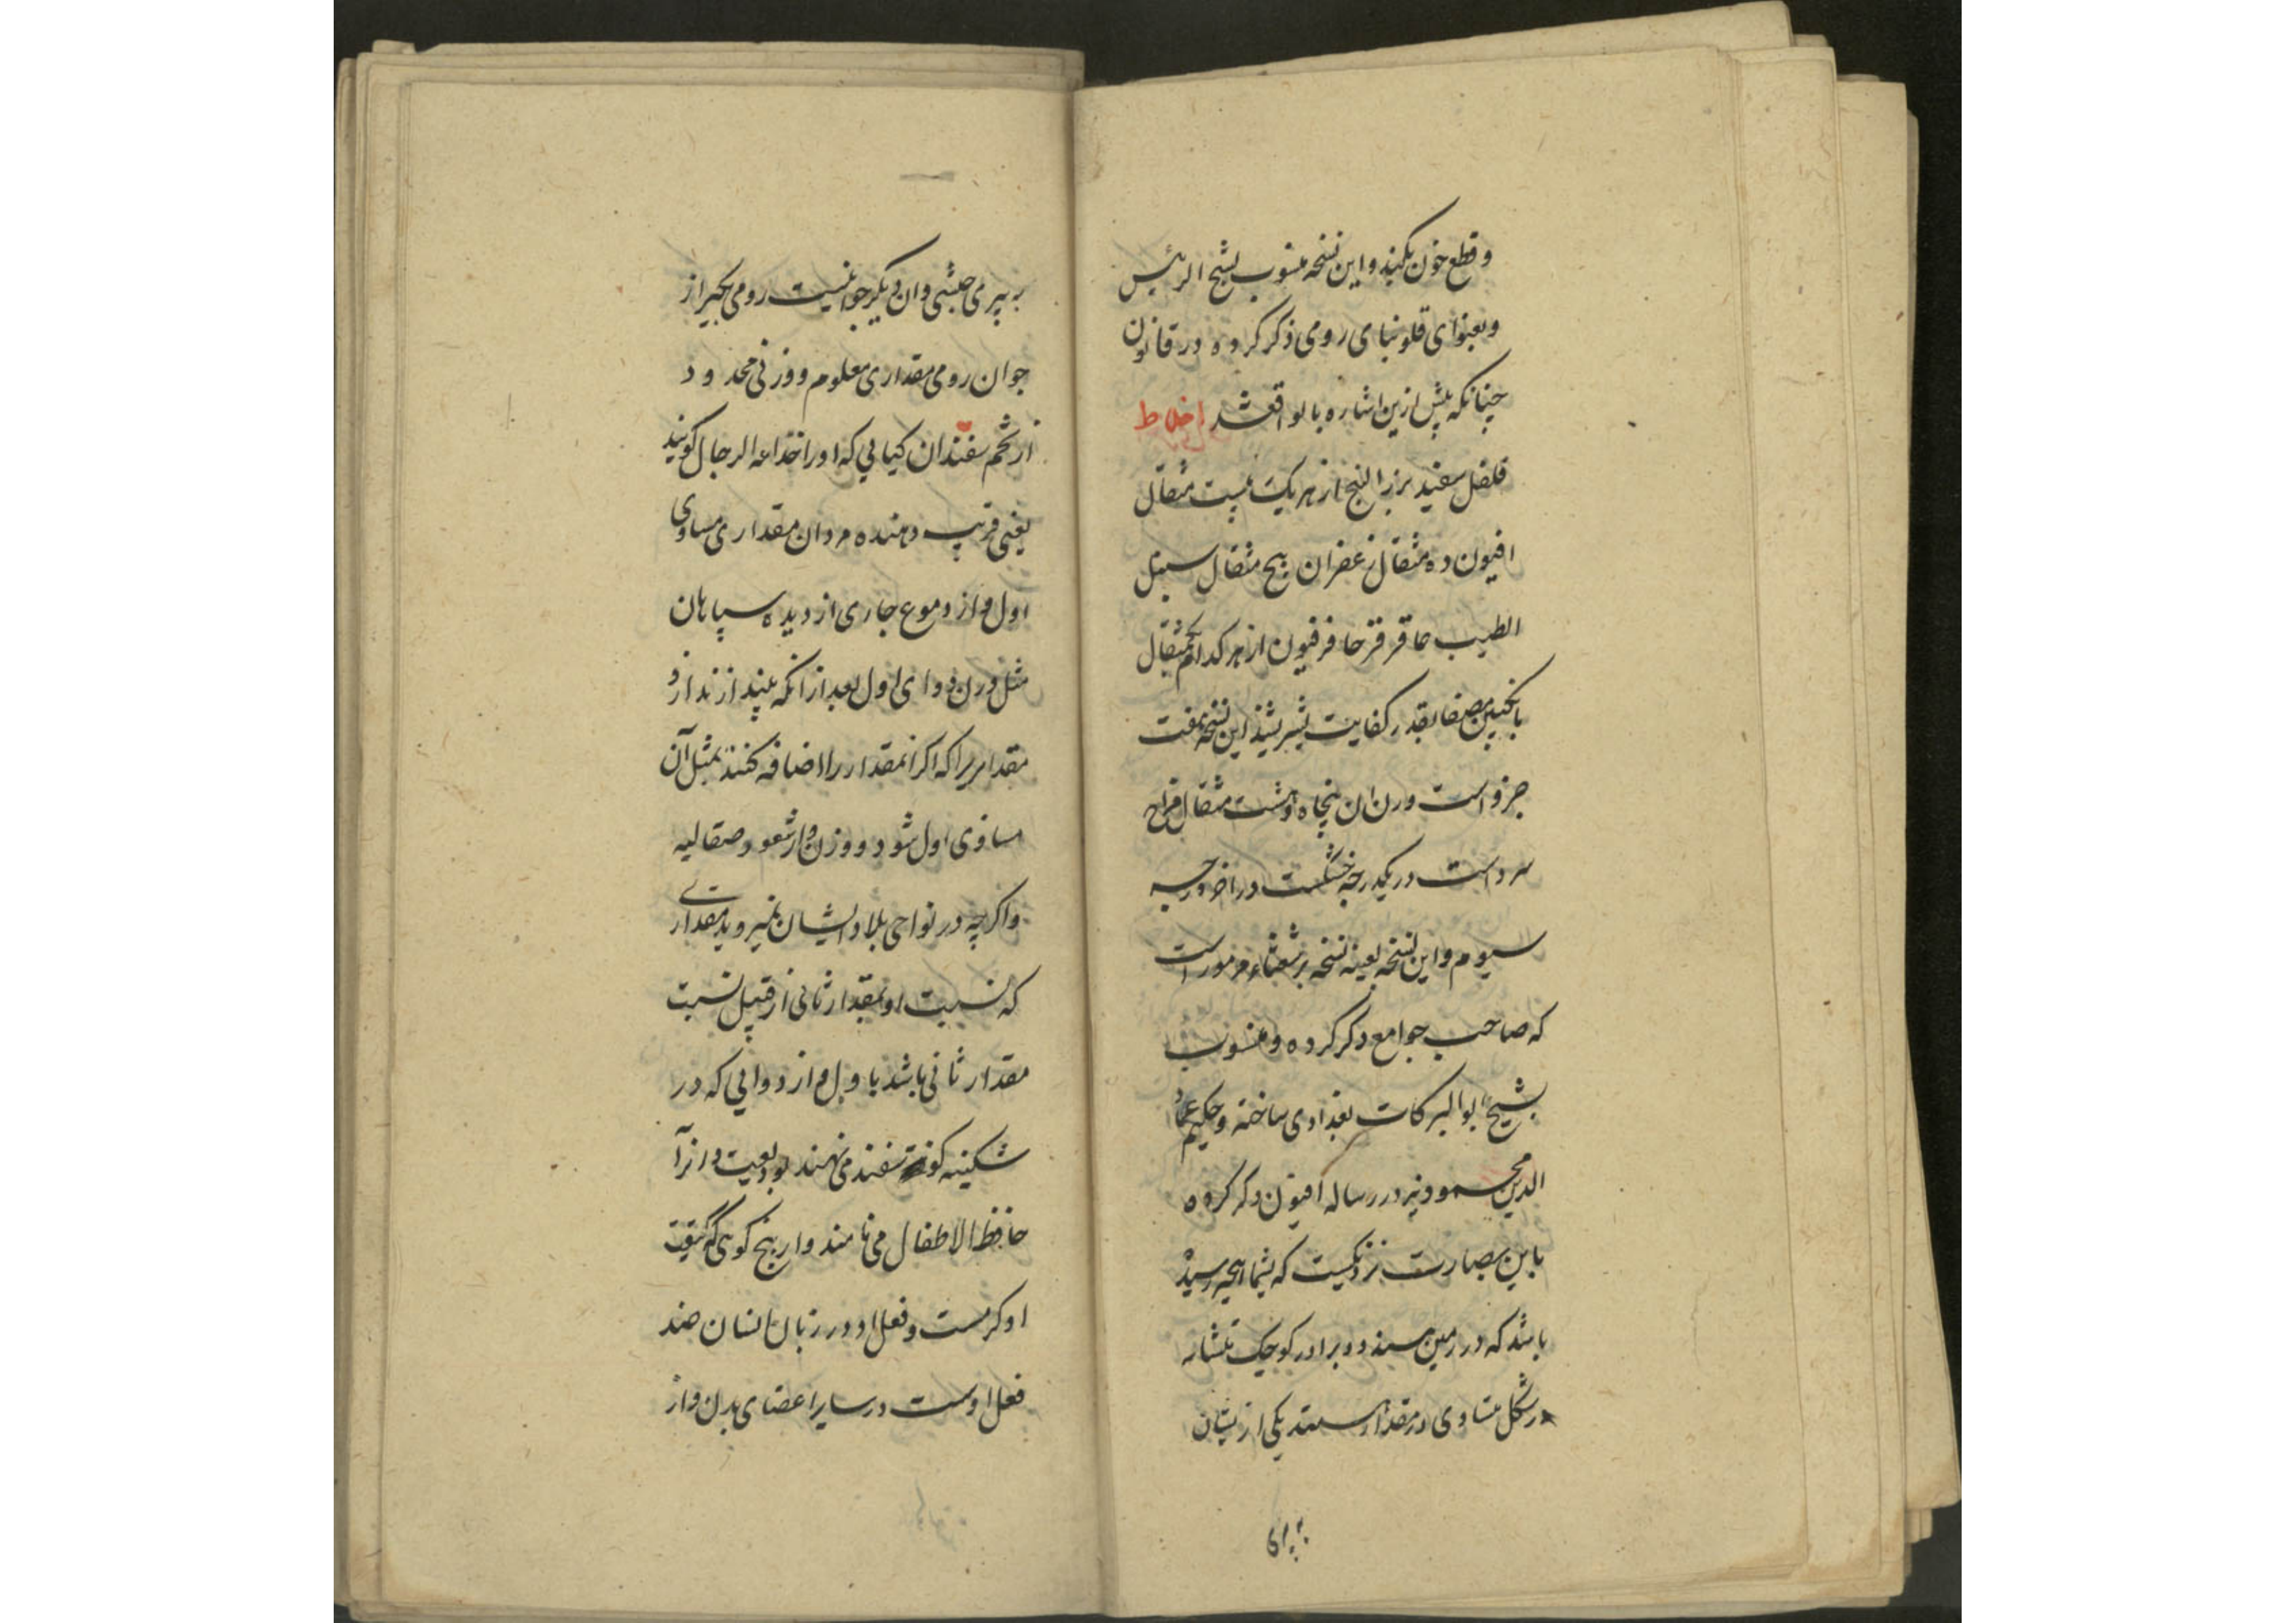 و قطع خون بکند و این نسخه منسوب بشیخ الرئیس
و بعنوای قلونیای رومی ذکر کرده در قانون
چنانکه پیش ازین اشاره بالو اقع شد اخلاط
فلفل سفید بزر النج از هر یک بیست مثقال
افیون ده مثقال زعفران پنج مثقال سنبل
الطیب عاقر قرحا فرفیون از هر کدام یکمثقال
بانگبین مصفا بقدر کفایت بسر بشند این نسخه هفت
جزو است وزن ان پنجاه و هشت مثقال مزاج
سرد است در یکدرجه خشکست در اخر درجه
سیوم و این نسخه بعینه نسخه برشعثاء مرموز است
که صاحب جوامع ذکر کرده و منسوب
بشیخ ابو البرکات بغدادی ساخته و حکیم عماد
الدین محمود نیز در رساله افیون ذکر کرده
باین عبارت نزدیکست که بشما انچه رسیده
باشد که در زمین سند دو برادر کوچک تشابه
در شکل متساوی در مقدار هستند یکی ازیشان
به پیری
به پیری حبشی و ان دیگر جوانیست رومی بگیر از
جوان رومی مقداری معلوم و وزنی محدود
از تخم سفند ان کیایی که او را خداعه الرجال گویند
یعنی فریب دهنده مردان مقداری مساوی
اول و از دموع جاری از دیده سپاهان
مثل وزن دوای اول بعد از انکه بیندازند از و
مقداریرا که اگر انمقدار را اضافه کنند بمثل آن
مساوی اول شود و وزن و از شعور صقالیه
و اگر چه در نواحی بلاد ایشان نمیروید مقداری
که نسبت او بمقدار ثانی از قبیل نسبت
مقدار ثانی باشد با اول و از دوایی که در
شکینه کوفته سفند می نهند بودیعت و انرا
حافظ الاطفال می نامند و از بیخ کوهی که حقیقت
او کرمست و فعل او در زبان انسان ضد
فعل اوست در سایر اعضای بدن و از